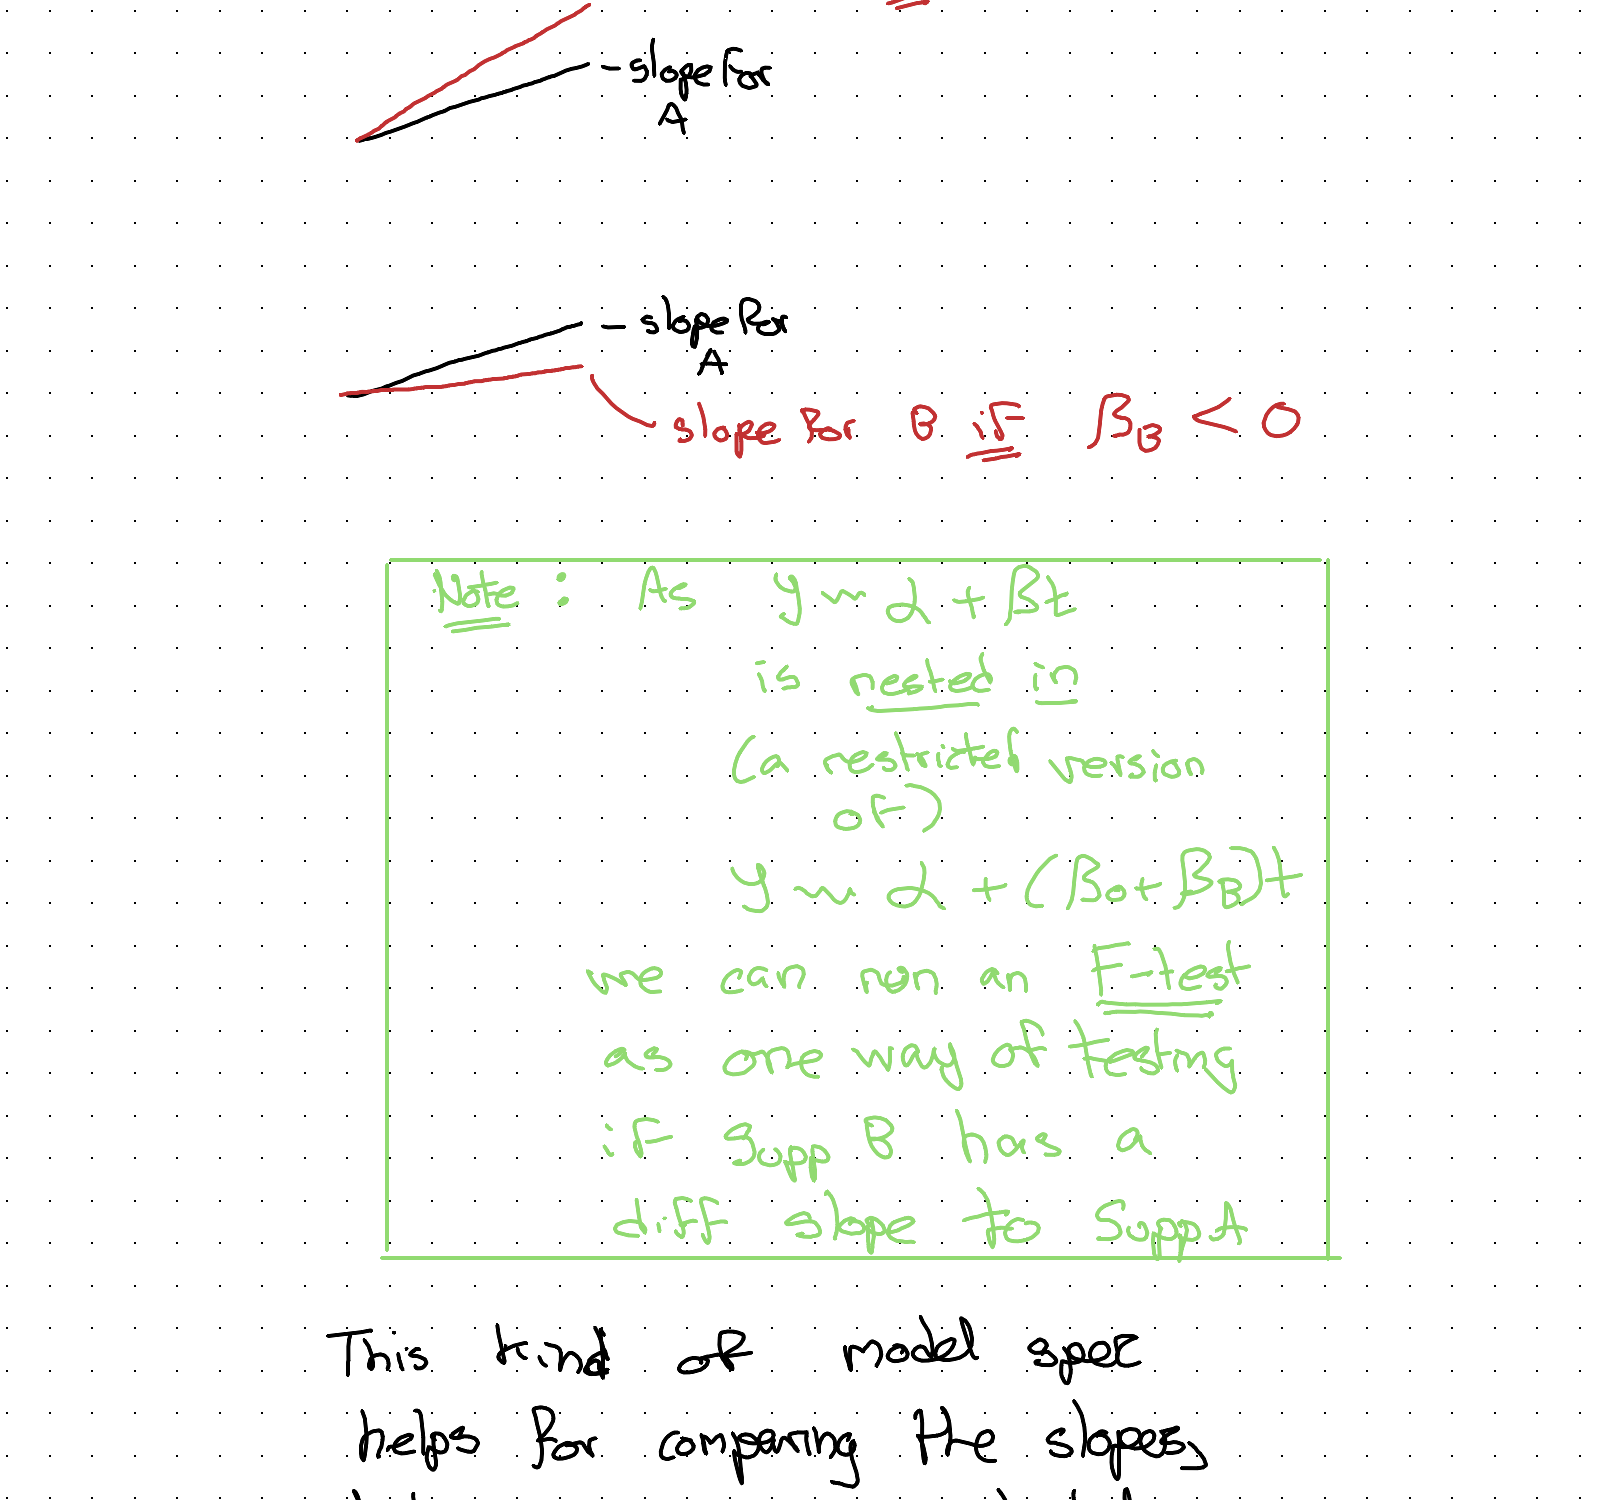 - slope for
A
- slope for
A
slope for B if β_B < 0
Note : As y ~ α + βt
is nested in
(a restricted version
of)
y ~ α + (β₀ + β_B)t
we can run an F-test
as one way of testing
if supp B has a
diff slope to Supp A
This kind of model spec
helps for comparing the slopes,